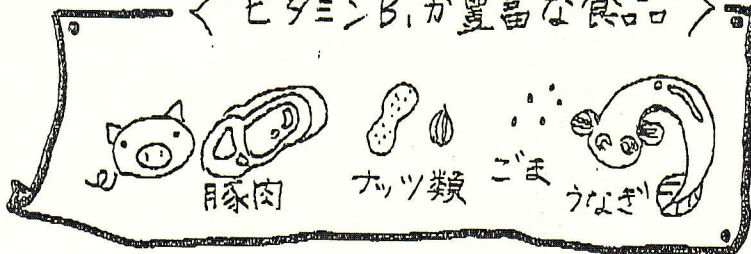 〈ビタミンB₁が豊富な食品〉
豚肉
ナッツ類
ごま
うなぎ